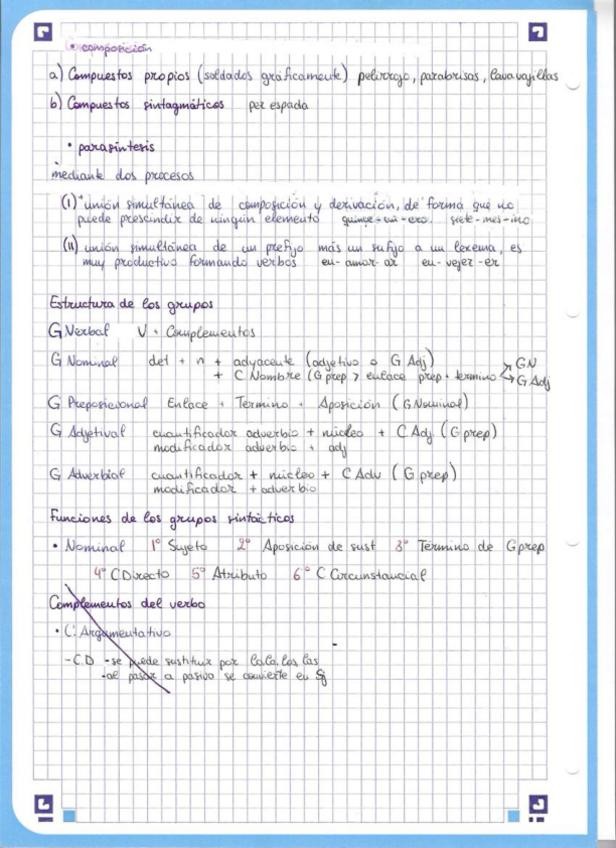 • composición
a) Compuestos propios (soldados gráficamente) pelirrojo, parabrisas, lavavajillas
b) Compuestos sintagmáticos pez espada
• parasíntesis
mediante dos procesos
(I) unión simultánea de composición y derivación, de forma que no
puede prescindir de ningún elemento quince-añ-ero. siete-mes-ino
(II) unión simultánea de un prefijo más un sufijo a un lexema, es
muy productivo formando verbos en-amor-ar en-vejez-er
Estructura de los grupos
G Verbal V + Complementos
G Nominal det + n + adyacente (adjetivo o G Adj)
+ C Nombre (G prep > enlace prep + termino → GN
→ G Adj
G Preposicional Enlace + Término + Aposición (G Nominal)
G Adjetival cuantificador adverbio + núcleo + C Adj (G prep)
modificador adverbio + adj
G Adverbial cuantificador + núcleo + C Adv (G prep)
modificador + adverbio
Funciones de los grupos sintácticos
• Nominal 1º Sujeto 2º Aposición de sust 3º Término de G prep
4º C Directo 5º Atributo 6º C Circunstancial
Complementos del verbo
• C. Argumentativo
- C.D - se puede sustituir por lo, la, los, las
- al pasar a pasivo se convierte en Sj